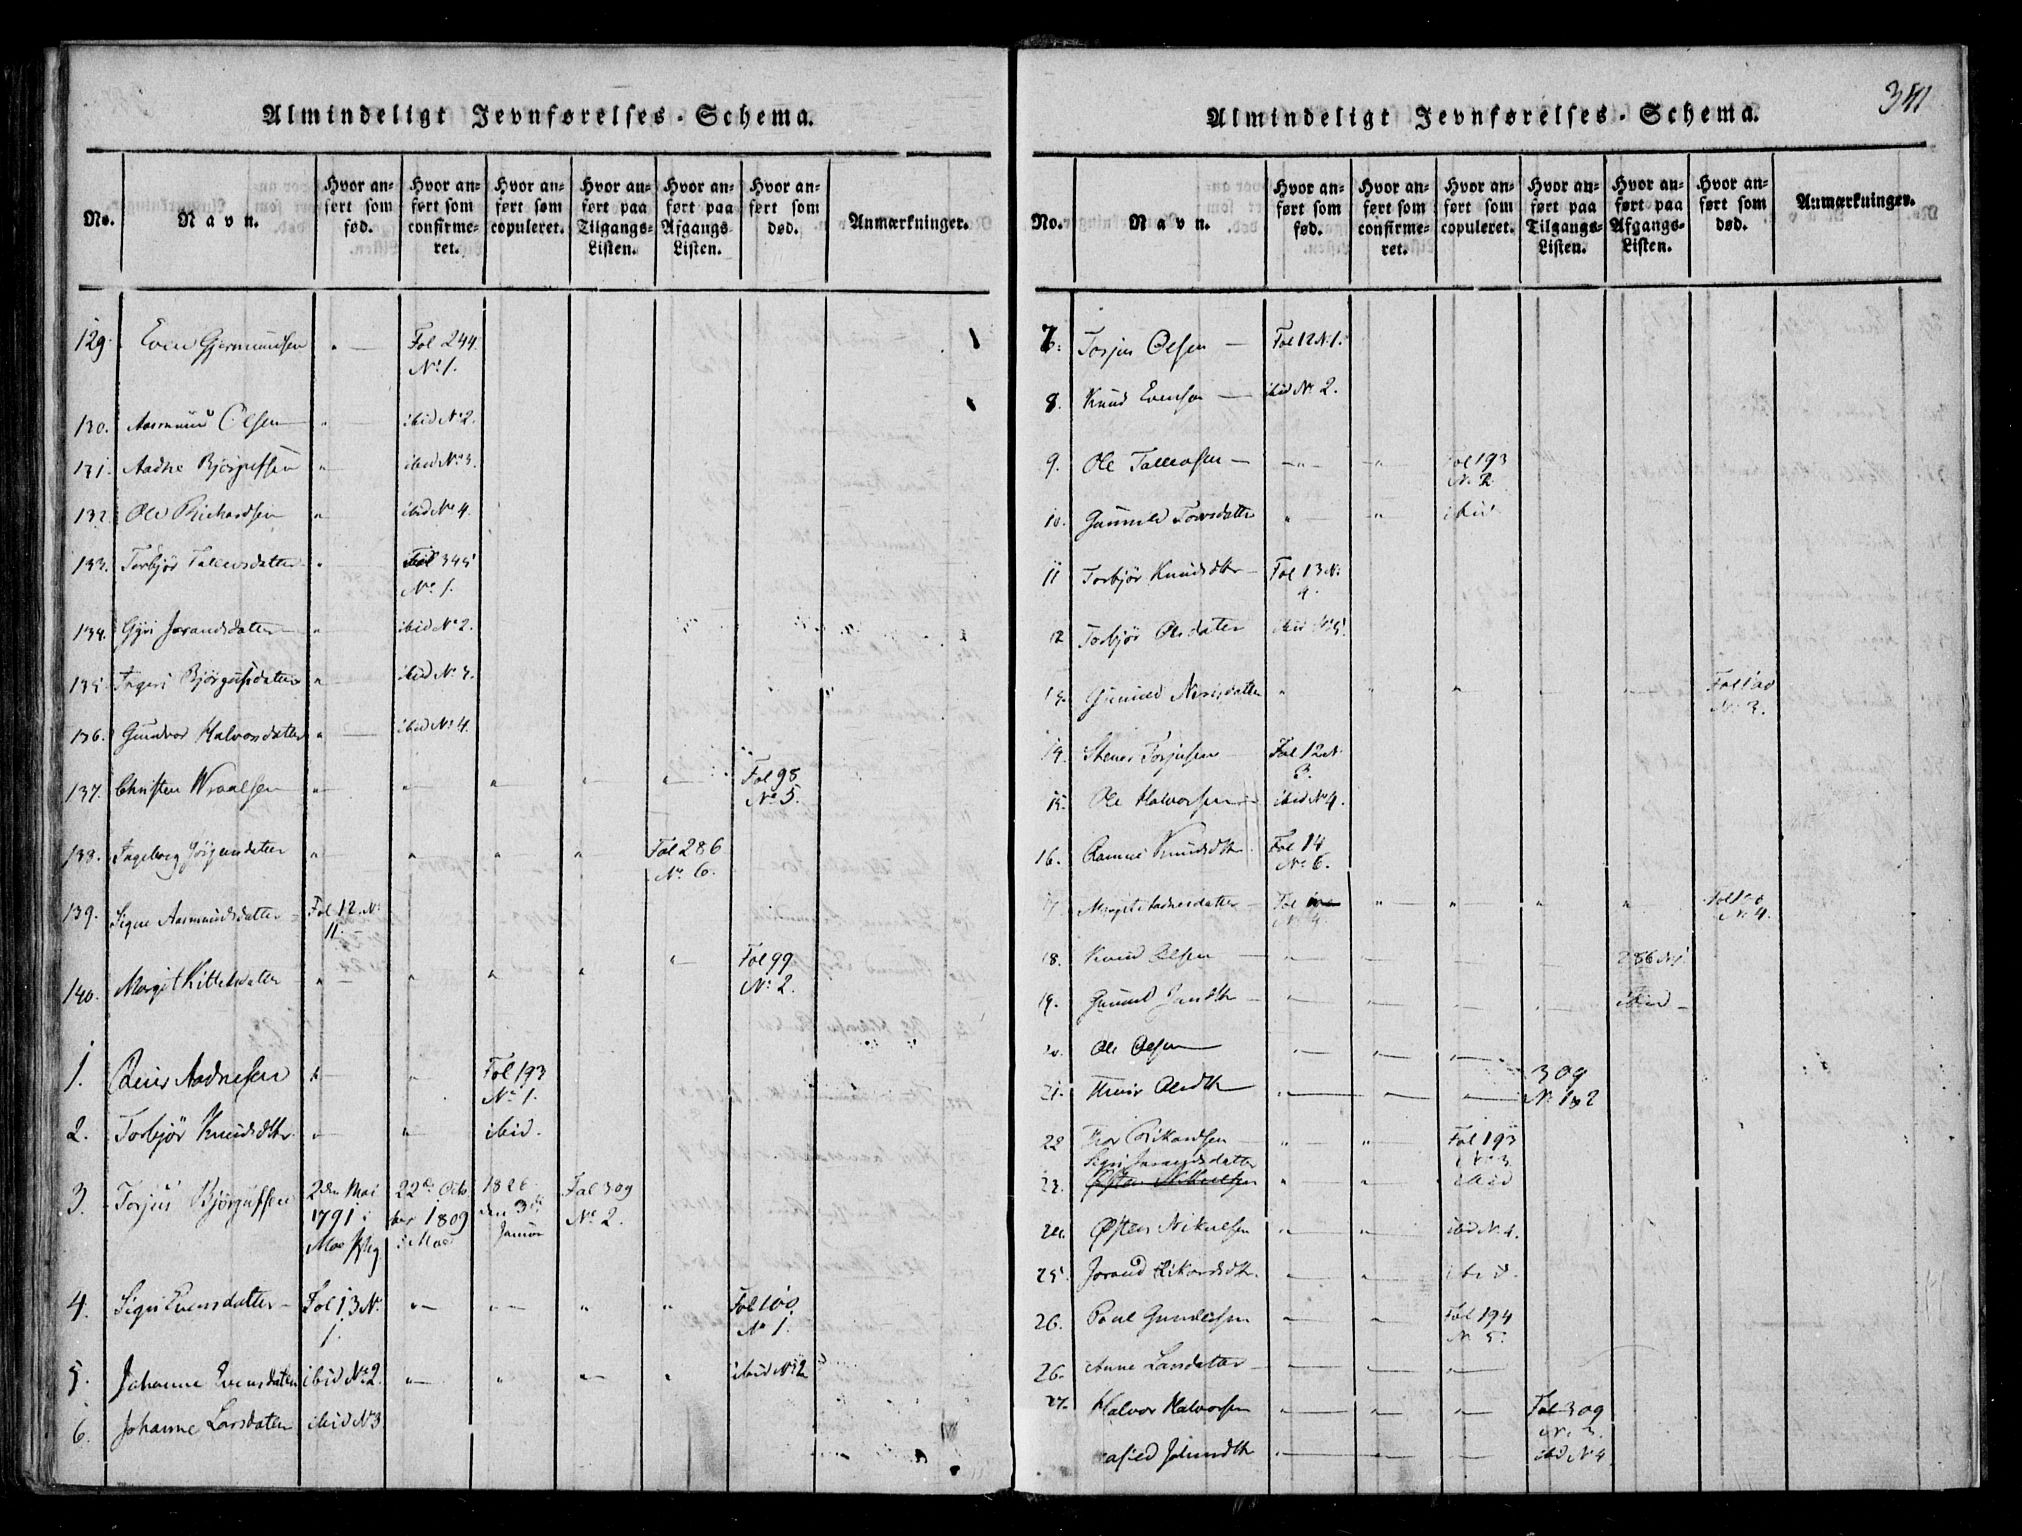 Almindeligt Jevnførelses-Schema.
No. Navn. Hvor anført som fød. Hvor anført som confirmeret. Hvor anført som copuleret. Hvor anført paa Tilgangs-Listen. Hvor anført paa Afgangs-Listen. Hvor anført som død. Anmærkninger.
129. Even Gjermundsen " Fol 244.
No 1.
130. Aasmund Olsen " ibid No 2.
131. Aadne Bjørgufsen " ibid No 3.
132. Ole Richardsen " ibid No 4.
133. Torbjör Tallevsdatter " 345
No 1.
134. Gyri Jorandsdatter " ibid No 2.
135 Ingeri Bjørgufsdatter " ibid No 3.
136. Gundvor Halvorsdatter " ibid No 4.
137. Christen Wraalsen " " " " " Fol 98
No 5.
138. Ingeborg Jörgensdatter " " " " Fol 286
No 6.
139. Signe Aasmundsdatter Fol 12. No
11.
140. Margit Kittelsdatter " " " " " Fol 99
No 2.
1. Aadnesen " " Fol 193
No 1.
2. Torbjör Knudsdtr. " " ibid.
3. Torjus Bjørgufsen 2den Mai 22de Octo 1826 Fol 309
1791 i ber 1809 den 3die No 2.
Moe i Moe Januar
4. Sigri Evensdatter Fol 13 No " " " " Fol 100
1. No 1.
5. Johanne Evensdatter ibid No 2. " " " " ibid No 2
6. Johanne Larsdatter ibid No 3
Almindeligt Jevnførelses-Schema.
341
No. Navn. Hvor anført som fød. Hvor anført som confirmeret. Hvor anført som copuleret. Hvor anført paa Tilgangs-Listen. Hvor anført paa Afgangs-Listen. Hvor anført som død. Anmærkninger.
7. Torjus Olsen Fol 12 No 1.
8. Knud Evensen ibid No 2.
9. Ole Tallevsen " " Fol 193
No 2
10. Gunnild Torsdatter " " ibid
11 Torbjör Knudsdtr Fol 13 No
4.
12 Torbjör Olsdatter ibid No 5.
13. Gunnild " " " " " Fol 100
No 3.
14. Stener Torjusen Fol 12 No
3.
15. Ole Halvorsen ibid No 4.
16. Knudsdtr Fol 14
No 6.
17. Margit Aadnesdatter Fol
No 4. " " " " No 4.
18. Knud Olsen " " " " 286 No 1
19. Gunild " " " " ibid
20. Ole Olsen " " "
21. Olsdtr " " " 309
No 1 2
22 Thor Rikardsen " " Fol 193
No 3
Sigri Jorandsdatter
23. Østen Nikulsen " " ibid
24. Østen Nikulsen " " ibid No 4.
25. Jorand Rikardsdtr. " " ibid.
26. Poul Gundersen " " Fol 194
No 5.
26. Anne Larsdatter " " "
27. Halvor Halvorsen " " " Fol 309
No 3.
" " " ibid No 4